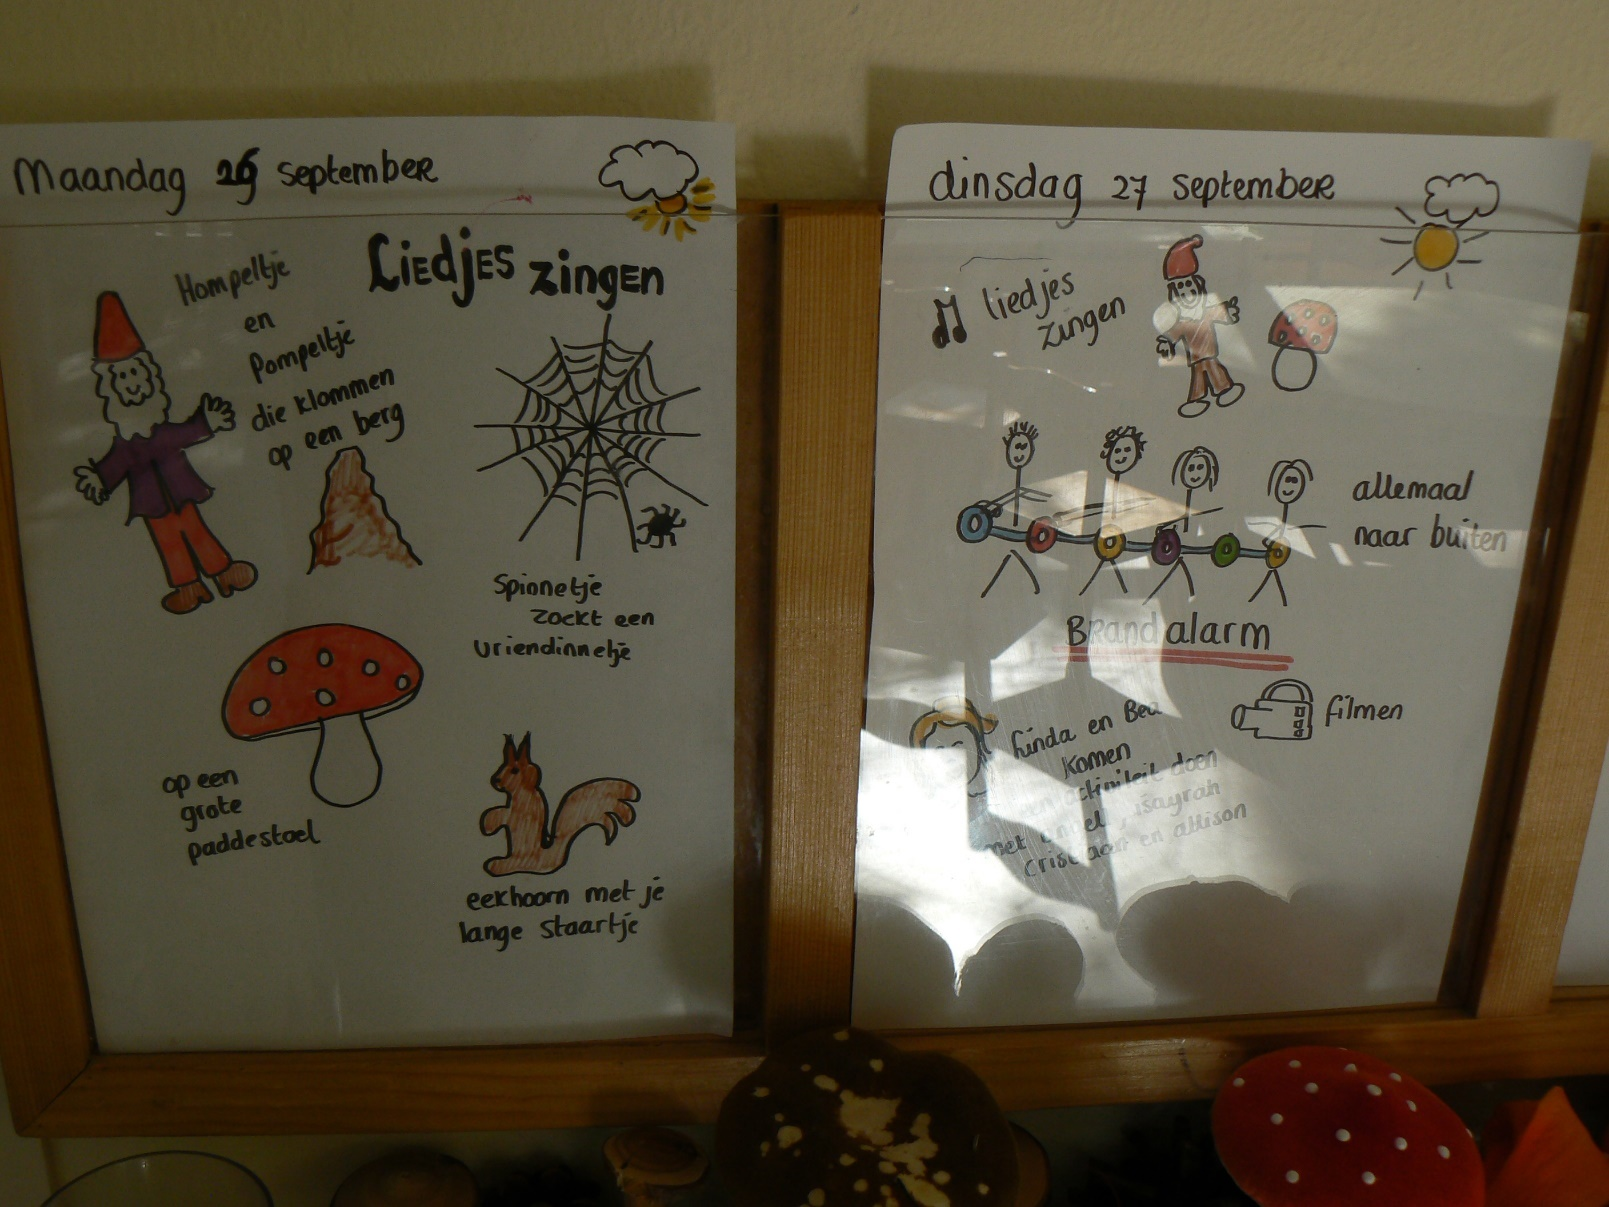 Maandag 26 september
Liedjes zingen
Hompeltje
en
Pompeltje
die klommen
op een berg
Spinnetje
zoekt een
vriendinnetje
op een
grote
paddestoel
eekhoorn met je
lange staartje
dinsdag 27 september
liedjes
zingen
allemaal
naar buiten
Brandalarm
filmen
Linda en Bea
komen
een activiteit doen
met
en allison